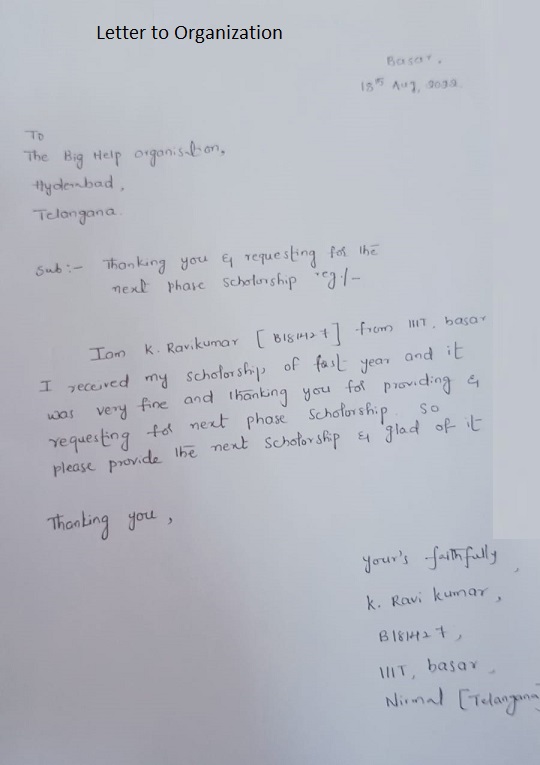 Letter to Organization
Basar,
18th Aug, 2022
To
The Big Help organisation,
Hyderabad,
Telangana.
Sub:- Thanking you & requesting for the
next phase scholorship reg/-
Iam K. Ravikumar [B181427] from IIIT, basar
I received my scholorship of last year and it
was very fine and thanking you for providing &
requesting for next phase scholorship. So
please provide the next scholorship & glad of it
Thanking you,
your's faithfully,
K. Ravi kumar,
B181427,
IIIT, basar,
Nirmal [Telangana]